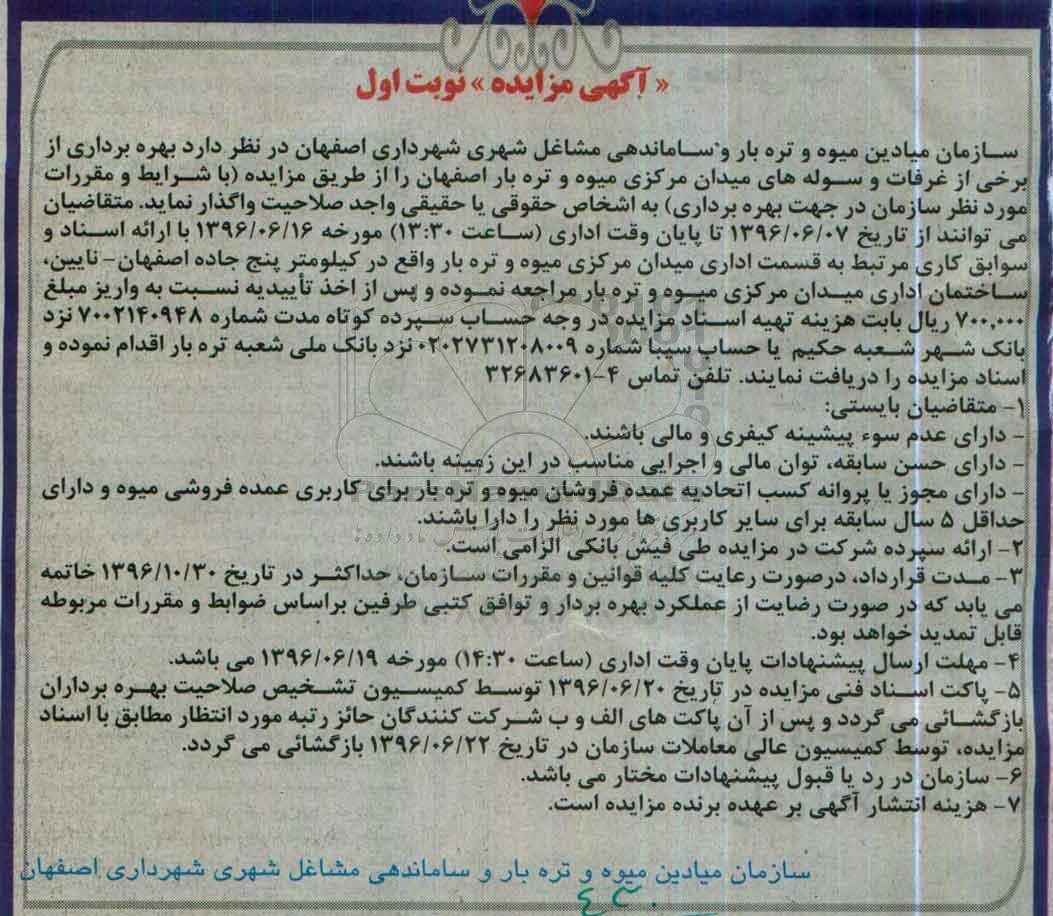 « آگهی مزایده » نوبت اول
سازمان میادین میوه و تره بار و ساماندهی مشاغل شهری شهرداری اصفهان در نظر دارد بهره برداری از
برخی از غرفات و سوله های میدان مرکزی میوه و تره بار اصفهان را از طریق مزایده (با شرایط و مقررات
مورد نظر سازمان در جهت بهره برداری) به اشخاص حقوقی یا حقیقی واجد صلاحیت واگذار نماید. متقاضیان
می توانند از تاریخ ۱۳۹۶/۰۶/۰۷ تا پایان وقت اداری (ساعت ۱۳:۳۰) مورخه ۱۳۹۶/۰۶/۱۶ با ارائه اسناد و
سوابق کاری مرتبط به قسمت اداری میدان مرکزی میوه و تره بار واقع در کیلومتر پنج جاده اصفهان- نایین،
ساختمان اداری میدان مرکزی میوه و تره بار مراجعه نموده و پس از اخذ تأییدیه نسبت به واریز مبلغ
۷۰۰,۰۰۰ ریال بابت هزینه تهیه اسناد مزایده در وجه حساب سپرده کوتاه مدت شماره ۷۰۰۲۱۴۰۹۴۸ نزد
بانک شهر شعبه حکیم یا حساب سیبا شماره ۰۲۰۲۷۳۱۲۰۸۰۰۹ نزد بانک ملی شعبه تره بار اقدام نموده و
اسناد مزایده را دریافت نمایند. تلفن تماس ۴-۳۲۶۸۳۶۰۱
۱- متقاضیان بایستی:
- دارای عدم سوء پیشینه کیفری و مالی باشند.
- دارای حسن سابقه، توان مالی و اجرایی مناسب در این زمینه باشند.
- دارای مجوز یا پروانه کسب اتحادیه عمده فروشان میوه و تره بار برای کاربری عمده فروشی میوه و دارای
حداقل ۵ سال سابقه برای سایر کاربری ها مورد نظر را دارا باشند.
۲- ارائه سپرده شرکت در مزایده طی فیش بانکی الزامی است.
۳- مدت قرارداد، درصورت رعایت کلیه قوانین و مقررات سازمان، حداکثر در تاریخ ۱۳۹۶/۱۰/۳۰ خاتمه
می یابد که در صورت رضایت از عملکرد بهره بردار و توافق کتبی طرفین براساس ضوابط و مقررات مربوطه
قابل تمدید خواهد بود.
۴- مهلت ارسال پیشنهادات پایان وقت اداری (ساعت ۱۴:۳۰) مورخه ۱۳۹۶/۰۶/۱۹ می باشد.
۵- پاکت اسناد فنی مزایده در تاریخ ۱۳۹۶/۰۶/۲۰ توسط کمیسیون تشخیص صلاحیت بهره برداران
بازگشائی می گردد و پس از آن پاکت های الف و ب شرکت کنندگان حائز رتبه مورد انتظار مطابق با اسناد
مزایده، توسط کمیسیون عالی معاملات سازمان در تاریخ ۱۳۹۶/۰۶/۲۲ بازگشائی می گردد.
۶- سازمان در رد یا قبول پیشنهادات مختار می باشد.
۷- هزینه انتشار آگهی بر عهده برنده مزایده است.
سازمان میادین میوه و تره بار و ساماندهی مشاغل شهری شهرداری اصفهان